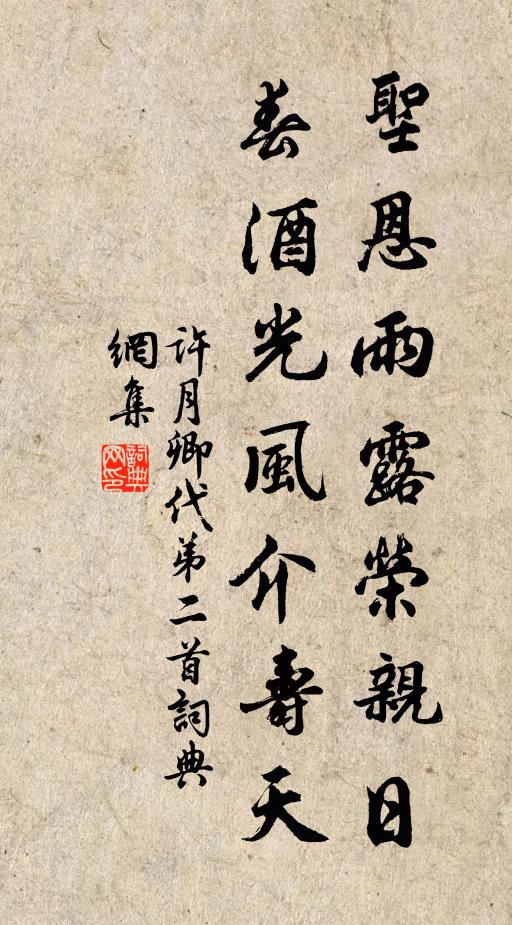 聖恩雨露榮親日
春酒光風介壽天
許月卿代弟二首詞典
網集
詞典網印